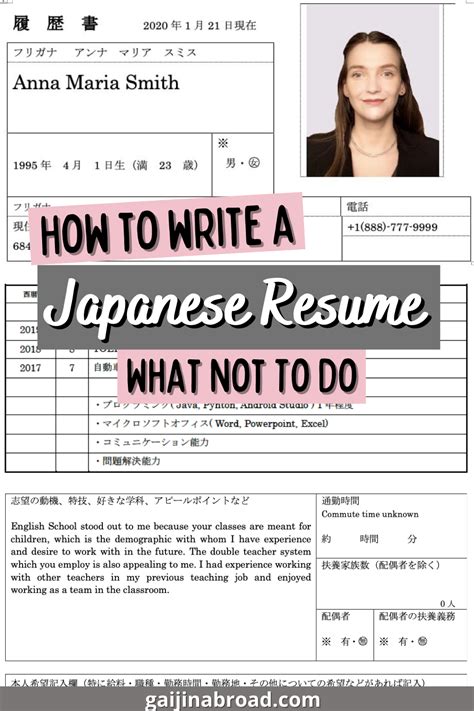 履 歴 書
2020 年 1 月 21 日現在
フリガナ アンナ マリア スミス
Anna Maria Smith
※
1995 年 4 月 1 日生（満 23 歳）
男・㊛
フリガナ
電話
+1(888)-777-9999
HOW TO WRITE A
Japanese Resume
WHAT NOT TO DO
2018
2017 7 自動車
・プログラミング（Java, Pynton, Android Studio）1 年程度
・マイクロソフトオフィス（Word, Powerpoint, Excel）
・コミュニケーション能力
・問題解決能力
志望の動機、特技、好きな学科、アピールポイントなど
English School stood out to me because your classes are meant for
children, which is the demographic with whom I have experience
and desire to work with in the future. The double teacher system
which you employ is also appealing to me. I had experience working
with other teachers in my previous teaching job and enjoyed
working as a team in the classroom.
通勤時間
Commute time unknown
約 時間 分
扶養家族数（配偶者を除く）
0 人
配偶者
※ 有・㊟
配偶者の扶養義務
※ 有・㊟
本人希望記入欄（特に給料・職種・勤務時間・勤務地・その他についての希望などがあれば記入）
gaijinabroad.com